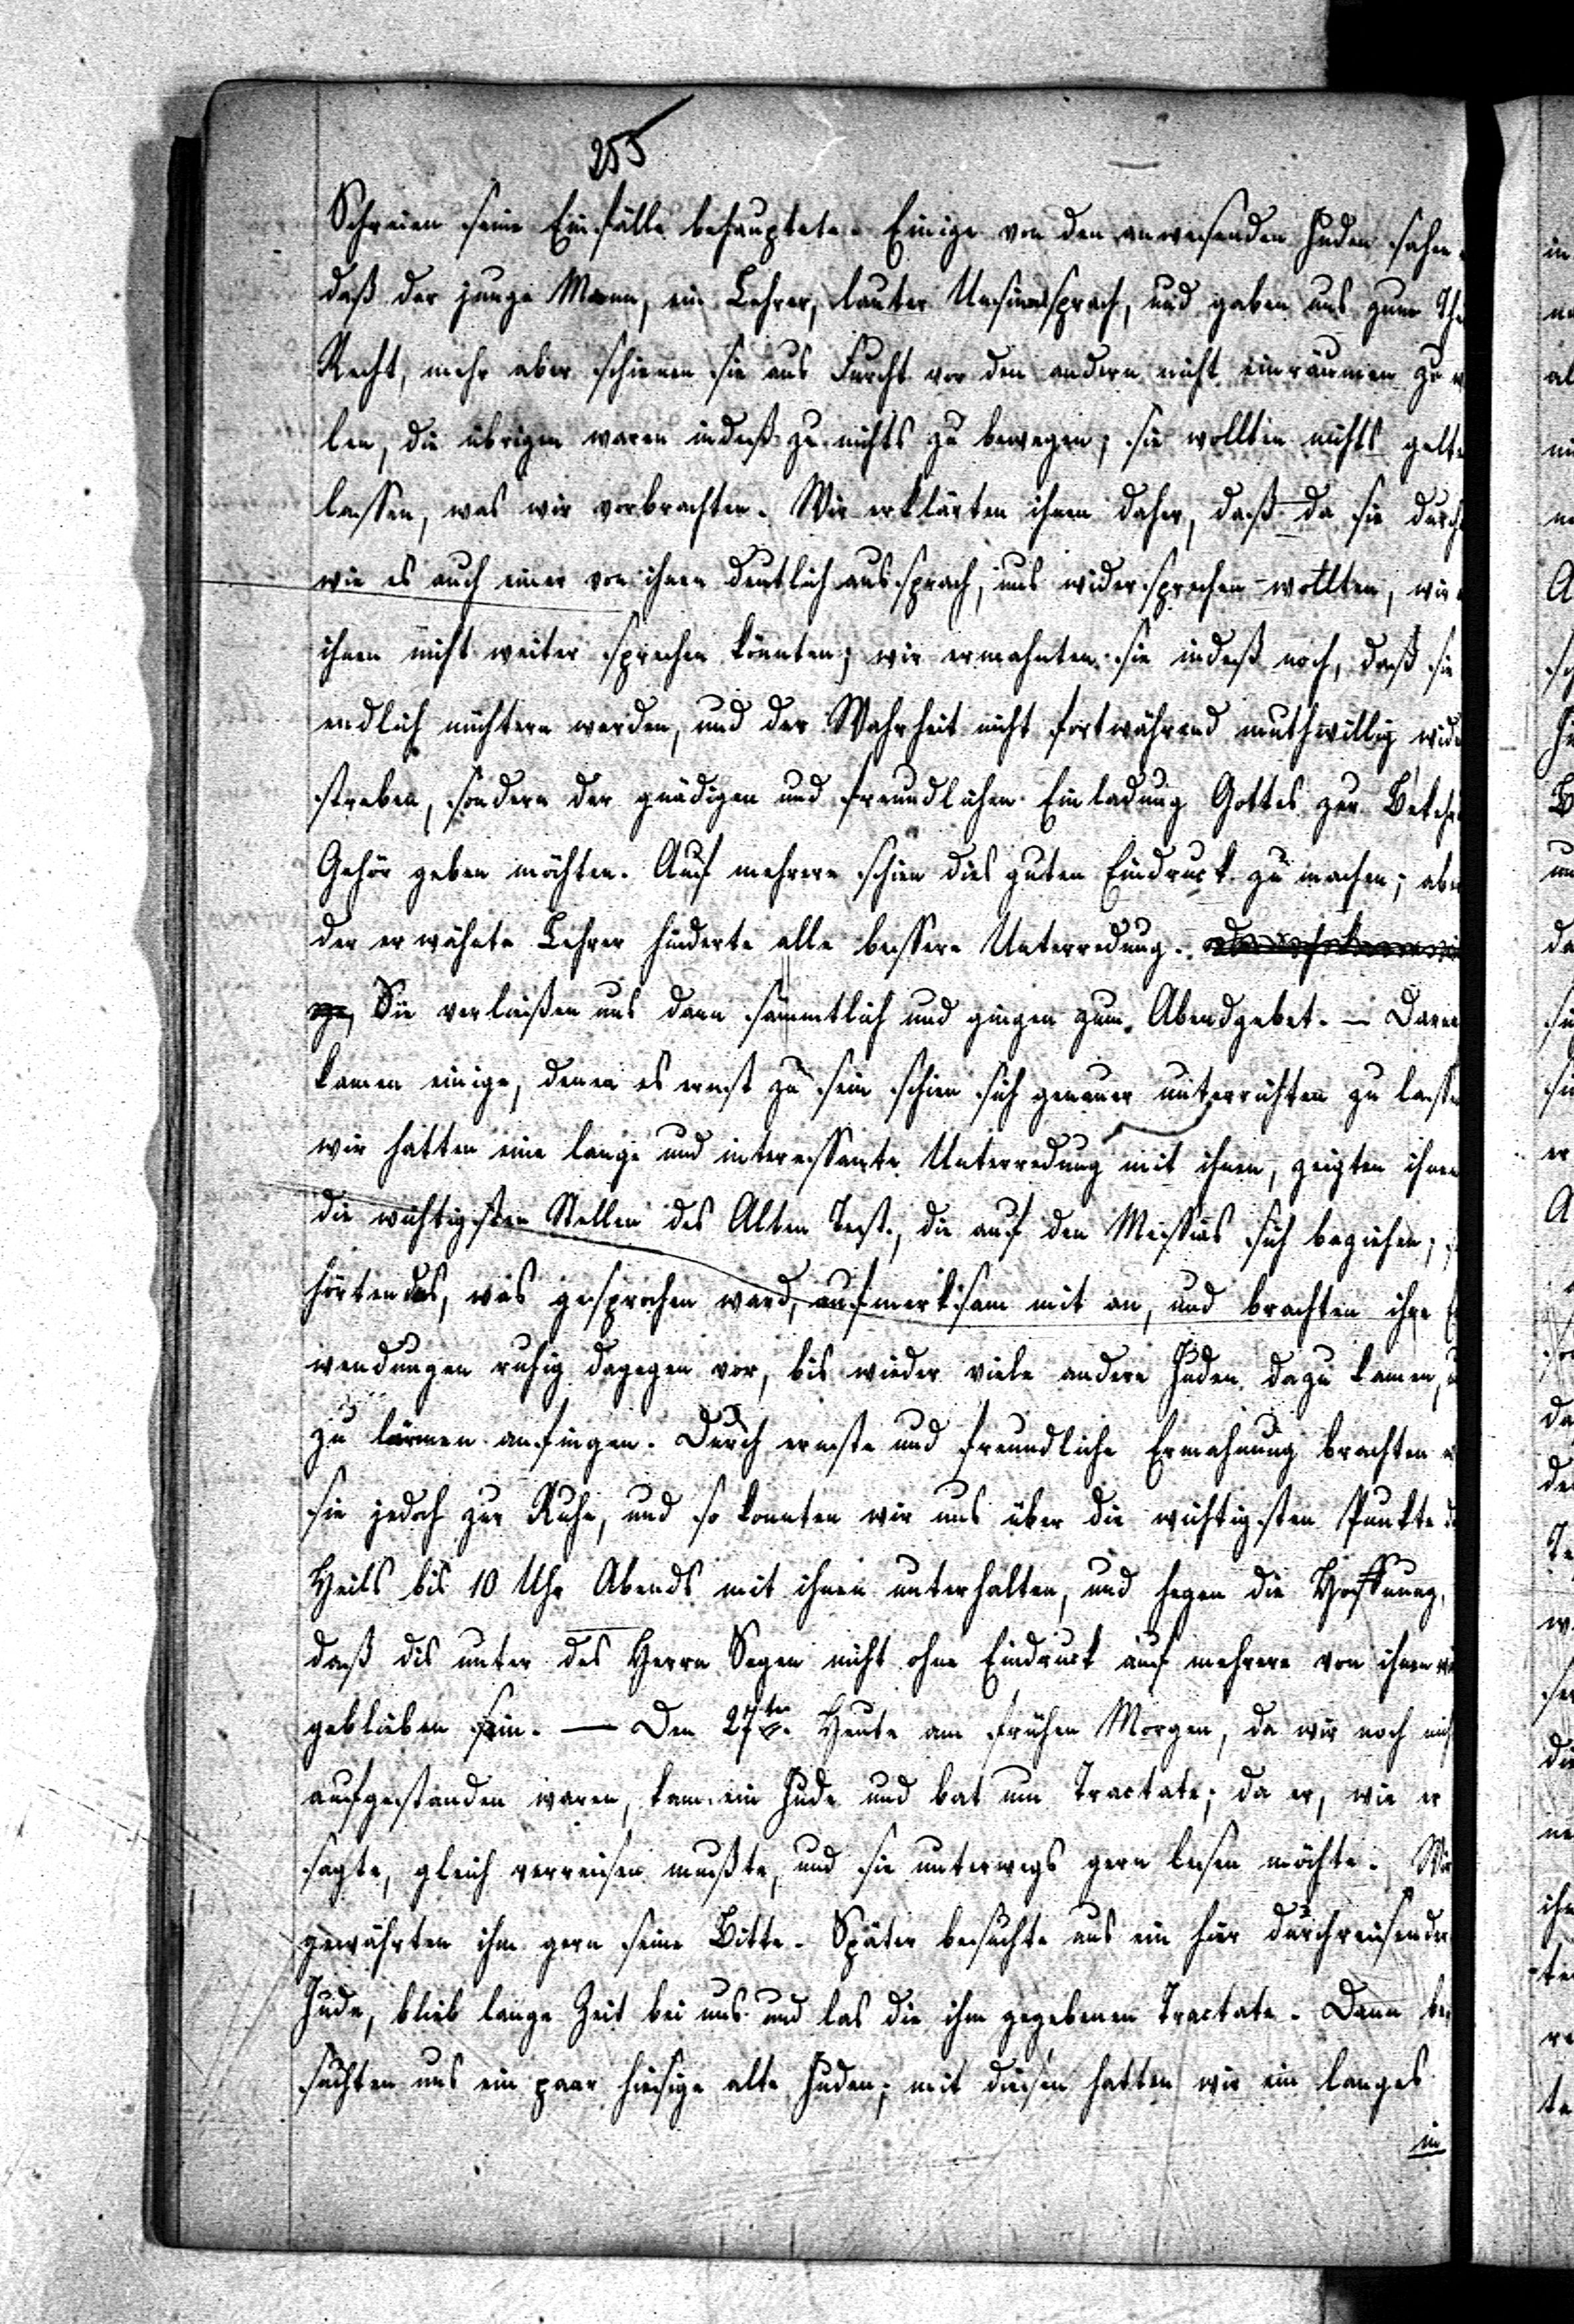 255
Schreien seine Einfälle behauptete. Einige von den anwesenden Juden sahen
daß der junge Mann, ein Lehrer, lauter Unsinn sprach, und gaben uns zum The
Recht, mehr aber schienen sie aus Furcht vor den andern nicht einräumen zu w
len, die übrigen waren indeß zu nichts zu bewegen; sie wollten nichts gelte
lassen, was wir vorbrachten. Wir erklärten ihnen daher, daß da sie durch
wie es auch einer von ihnen deutlich aussprach, uns widersprechen wollten, wir
ihnen nicht weiter sprechen könnten; wir ermahnten sie indeß noch, daß sie
endlich nüchtern werden, und der Wahrheit nicht fortwährend muthwillig wide
streben, sondern der gnädigen und freundlichen Einladung Gottes zur Bekehr
Gehör geben möchten. Auf mehrere schien dies guten Eindruck zu machen; aber
der erwähnte Lehrer hinderte alle bessere Unterredung.
Sie verließen uns dann sämmtlich und gingen zum Abendgebet. —
kamen einige, denen es ernst zu sein schien sich genauer unterrichten zu lasse
wir hatten eine lange und interessante Unterredung mit ihnen, zeigten ihnen
die wichtigsten Stellen des Alten Test., die auf den Messias sich beziehen;
hörten das, was gesprochen ward, aufmerksam mit an, und brachten ihre E
wendungen ruhig dagegen vor, bis wieder viele andere Juden dazu kamen, u
zu lärmen anfingen. Durch ernste und freundliche Ermahnung brachten w
sie jedoch zur Ruhe, und so konnten wir uns über die wichtigsten Punkte d
Heils bis 10 Uhr Abends mit ihnen unterhalten, und hegen die Hoffnung,
daß dis unter des Herrn Segen nicht ohne Eindruck auf mehrere von ihnen wi
geblieben sein. — Den 27ten. Heute am frühen Morgen, da wir noch nich
aufgestanden waren, kam ein Jude und bat um Tractate; da er, wie er
sagte, gleich verreisen mußte, und sie unterwegs gern lesen möchte. Wir
gewährten ihm gern seine Bitte. Später besuchte uns ein hier durchreisender
Jude, blieb lange Zeit bei uns und las die ihm gegebenen Tractate. Dann be
suchten uns ein paar hiesige alte Juden; mit diesen hatten wir ein langes
in